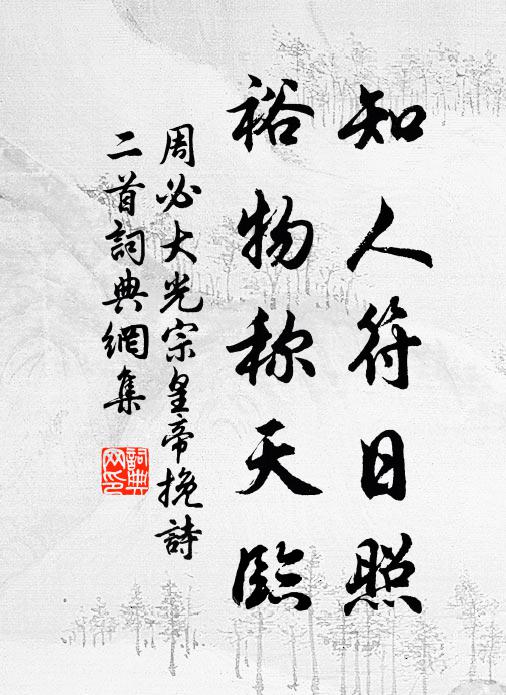 知人符日照
裕物称天臨
周必大光宗皇帝挽詩
二首詞典網集
詞典
网印